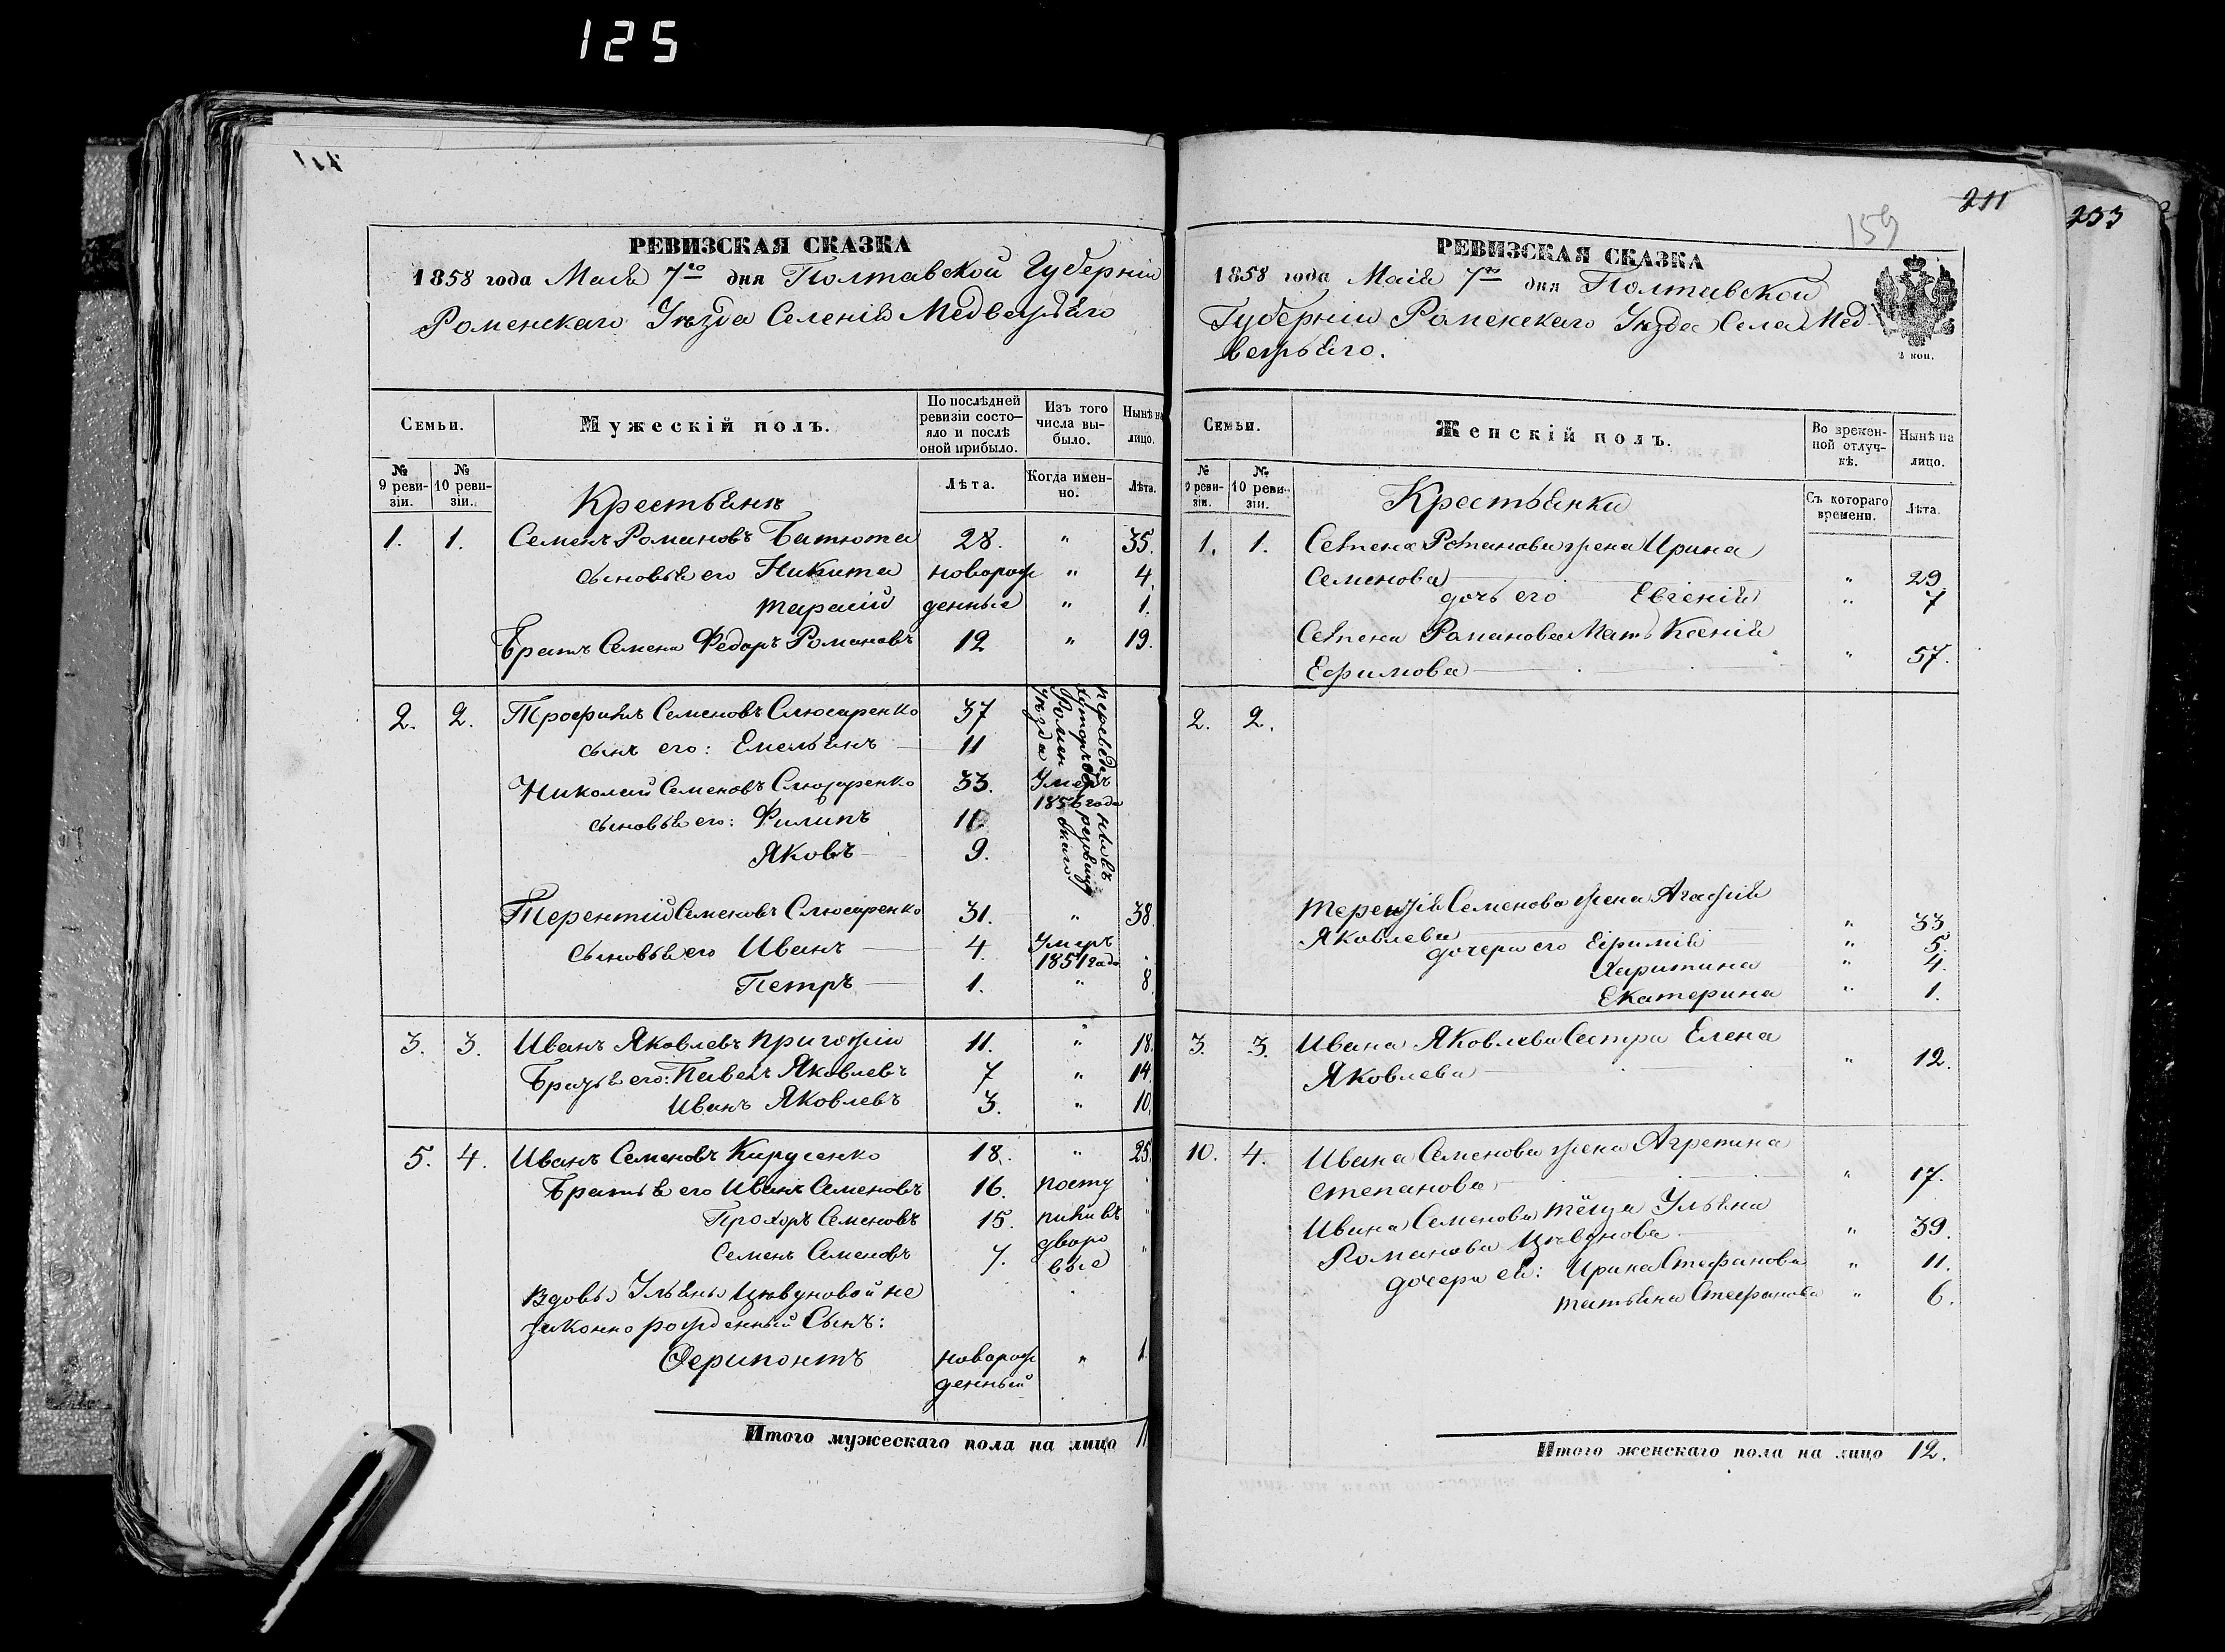 125
РЕВИЗСКАЯ СКАЗКА
1858 года Маія 7го дня Полтавской Губерніи
Роменскаго Уѣзда Селенія Медвежьяго
Семьи.
Мужескій полъ.
По послѣдней ревизіи состо-яло и послѣ оной прибыло.
Изъ того числа вы-было.
Нынѣ на лицо.
№ 9 реви-зіи.
№ 10 реви-зіи.
Лѣта.
Когда имен-но.
Лѣта.
Крестьяне
1. 1. Семенъ Романовъ Батюта 28. " 35.
сыновья его Никита новорож " 4.
Тарасій денные " 1.
Братъ Семена Федоръ Романовъ 12 " 19.
2. 2. Трофимъ Семеновъ Слюсаренко 37
сынъ его: Емельянъ 11
Николай Семеновъ Слюсаренко 33. Умер 1856 года
сыновья его: Филипъ 11
Яковъ 9.
Роменскаго Уѣзда
Терентій Семеновъ Слюсаренко 31. " 38.
сыновья его Иванъ 4. Умеръ 1851 года
Петръ 1. " 8.
3. 3. Иванъ Яковлевъ Пригожій 11. " 18.
Братья его: Павелъ Яковлевъ 7 " 14.
Иванъ Яковлевъ 3. " 10.
5. 4. Иванъ Семеновъ Кирусенко 18. " 25.
Братья его Иванъ Семеновъ 16. посту
Прохоръ Семеновъ 15. пили въ "
Семенъ Семеновъ 7. дворо вые "
Вдовы Ульяны Цывуновой не
законно рожденный Сынъ:
Ферапонтъ новорож " 1
денный
Итого мужескаго пола на лицо 11
211
159
233
РЕВИЗСКАЯ СКАЗКА
1858 года Маія 7го дня Полтавской
Губерніи Роменскаго Уѣзда Села Мед
вежьяго.
2 коп.
Семьи.
Женскій полъ.
Во времен-ной отлуч-кѣ.
Нынѣ на лицо.
№ 9 реви-зіи.
№ 10 реви-зіи.
Съ котораго времени.
Лѣта.
Крестьянки
1. 1. Семена Романова жена Ирина
Семенова " 29.
дочь его Евгенія " 7
Семена Романова Мать Ксенія
Ефимова " 57.
2. 2.
Терентія Семенова жена Агафія
Яковлева " 33
дочери его Ефимія " 5.
Харитина " 4.
Екатерина " 1.
3. 3. Ивана Яковлева Сестра Елена
Яковлева " 12.
10. 4. Ивана Семенова жена Агрепина
Степанова " 17.
Ивана Семенова тёща Ульяна
Романова Цывунова " 39.
дочери ея: Ирина Стефанова " 11.
Татьяна Стефанова " 6.
Итого женскаго пола на лицо 12.